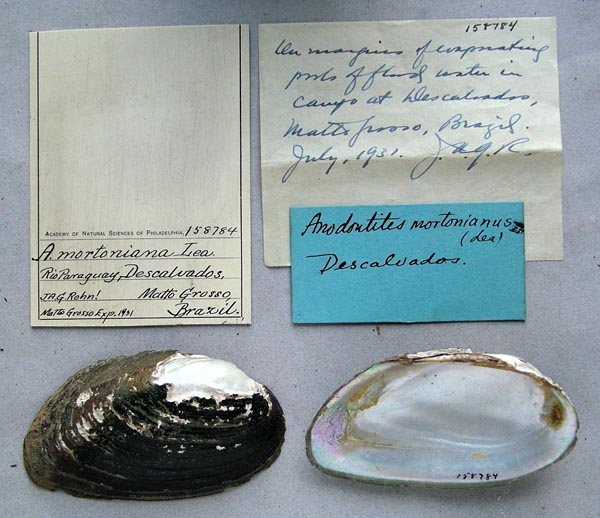 ACADEMY OF NATURAL SCIENCES OF PHILADELPHIA, 158784
A. mortoniana Lea.
Rio Paraguay, Descalvados,
J.A.G. Rehn! Matto Grosso,
Matto Grosso Exp. 1931 Brazil.
158784
On margins of evaporating
pools of flood water in
campo at Descalvados,
Matto Grosso, Brazil.
July, 1931. J.A.G.R.
Anodontites mortonianus
(Lea)
Descalvados.
158784